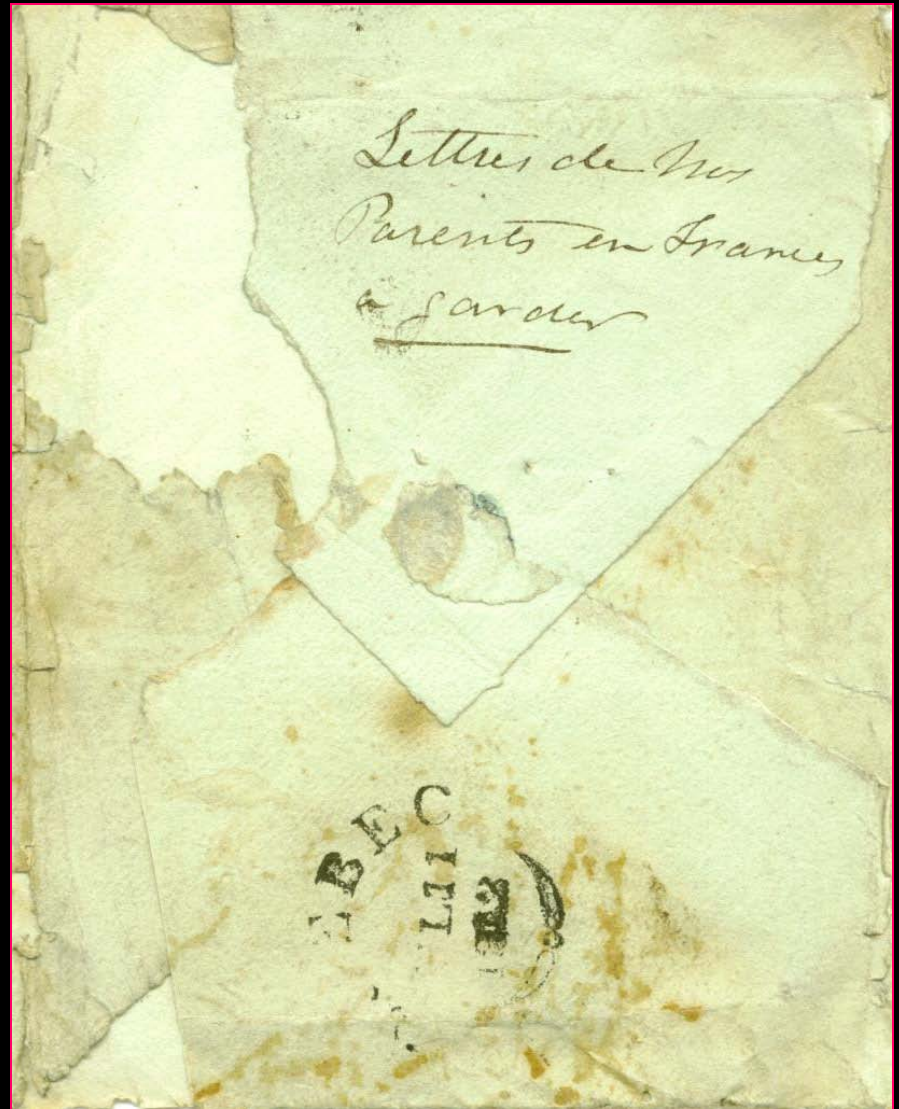 Lettres de Nos
Parents en France
a garder
EBEC